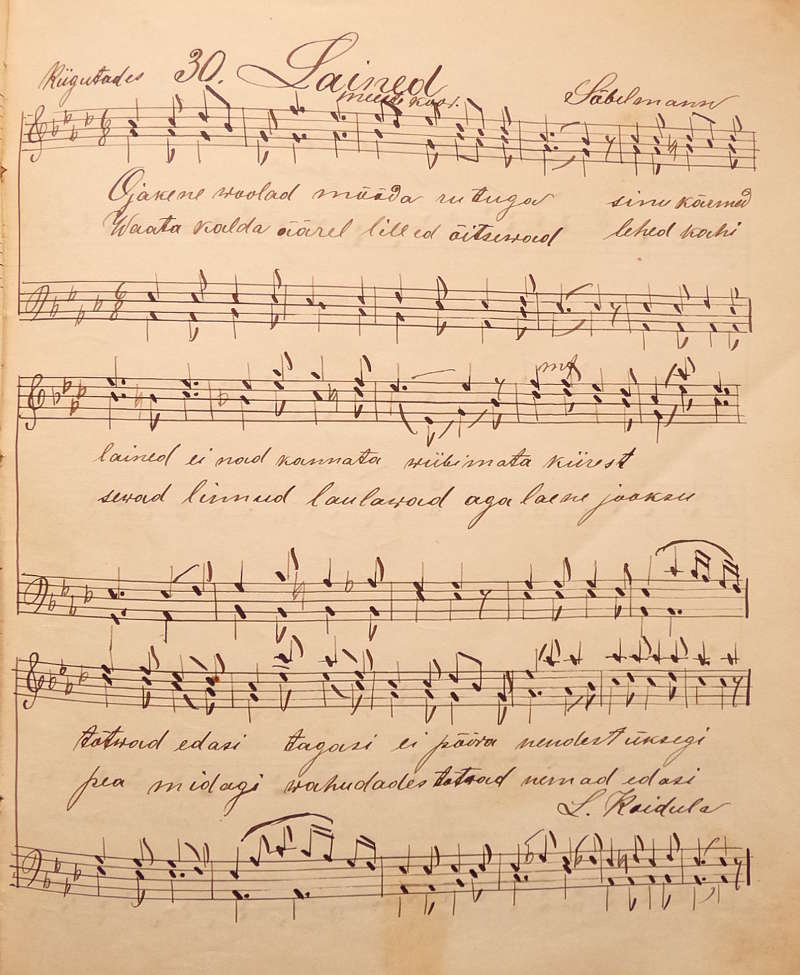 Kiigutades 30. Lained
meeste koor. Säbelmann
Ojakene woolad mööda rutuga sinu käemed
Waata kalda äärel lilled õitsewad lehed kahi
lained ei nad kannata wiibimata kiirest
sewad linnud laulawad aga laene jooksu
tõtwad edasi tagasi ei pööra nendest üksegi
pea midagi wahudades tõtwad nemad edasi
L. Koidula
mf